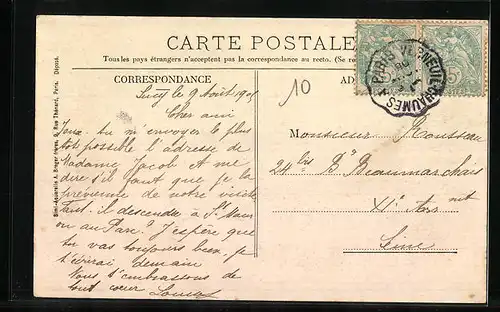 CARTE POSTALE
Tous les pays étrangers n'acceptent pas la correspondance au recto. (Se
CORRESPONDANCE
AD
Sucy le 9 Août 1905
Cher ami
tu m'envoyer le plus
tôt possible l'adresse de
Madame Jacob et me
dire s'il faut que je la
prévienne de notre visite
Faut-il descendre à St Maur
ou au Parc? J'espère que
tu vas toujours bien. Je
t'écrirai demain
Nous t'embrassons de
tout cœur Louise
10
Monsieur Rousseau
24 bis Bd Beaumarchais
XIe Arr nt
Seine
PARIS A VERNEUIL-CHAUMES
5
Rue Thénard, Paris. Déposé.